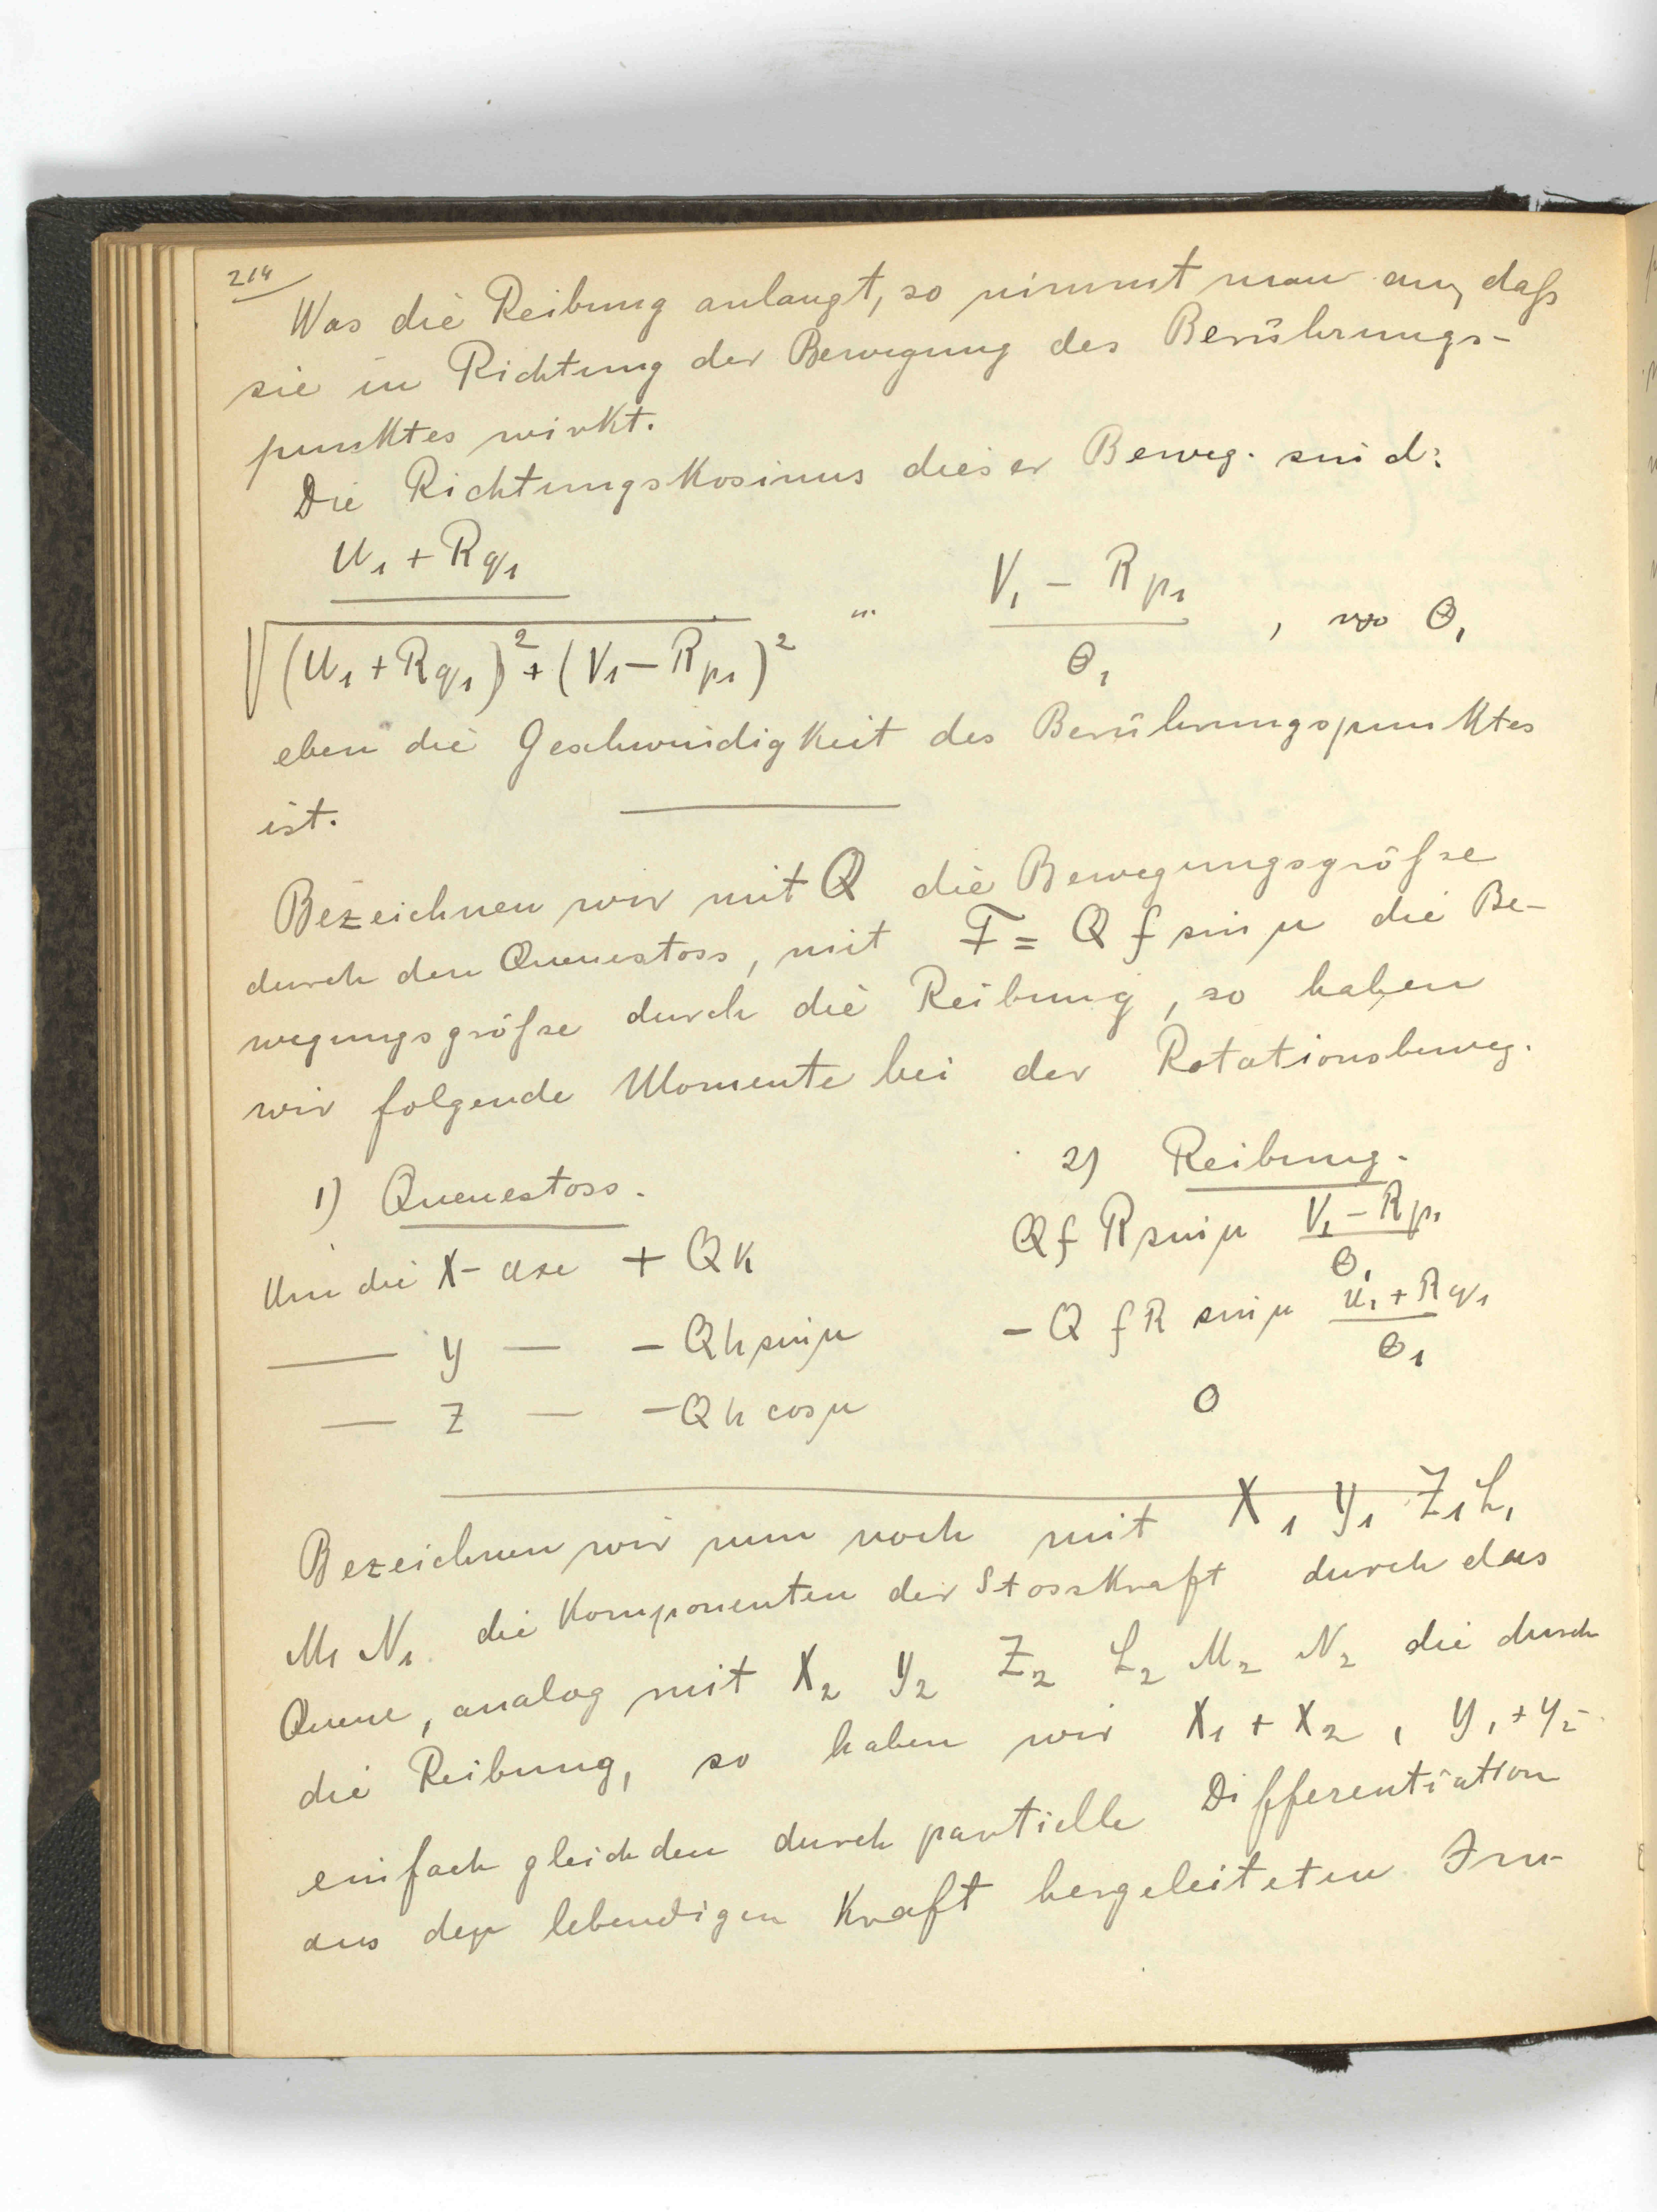 214
Was die Reibung anlangt, so nimmt man an, daß
sie in Richtung der Bewegung des Berührungs-
punktes wirkt.
Die Richtungskosinus dieser Beweg. sind:
u₁ + Rq₁
V₁ - Rp₁
√(u₁ + Rq₁)² + (V₁ - Rp₁)² ... Θ₁ , wo Θ₁
eben die Geschwindigkeit des Berührungspunktes
ist.
Bezeichnen wir mit Q die Bewegungsgröfse
durch den Queuestoss, mit F = Q f sin μ die Be-
wegungsgröfse durch die Reibung, so haben
wir folgende Momente bei der Rotationsbeweg.
1) Queuestoss. 2) Reibung.
Um die X-axe + Qk Q f R sin μ (V₁ - Rp₁)/Θ₁
— y — - Qh sin μ - Q f R sin μ (u₁ + Rq₁)/Θ₁
— Z — - Qh cos μ 0
Bezeichnen wir nun noch mit X₁ Y₁ Z₁ L₁
M₁ N₁ die Komponenten der Stosskraft durch das
Queue, analog mit X₂ Y₂ Z₂ L₂ M₂ N₂ die durch
die Reibung, so haben wir X₁ + X₂ , Y₁ + Y₂
einfach gleich den durch partielle Differentiation
aus der lebendigen Kraft hergeleiteten Im-